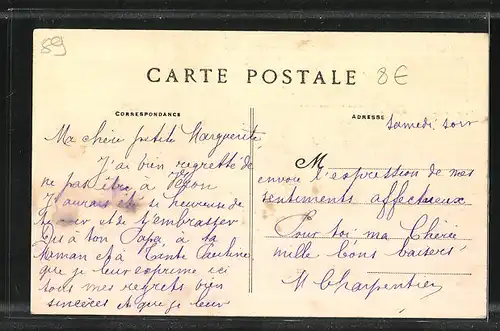 89
8€
CARTE POSTALE
CORRESPONDANCE
ADRESSE
Samedi soir
Ma chère petite Marguerite
J'ai bien regretté de
ne pas être à
J'aurais été si heureuse de
te voir et de t'embrasser
Dis à ton Papa à ta
Maman et à Tante Pauline
que je leur exprime ici
tous mes regrets bien
sincères et que je leur
M
envoie l'expression de mes
sentiments affectueux
Pour toi ma Chérie
mille bons baisers
M Charpentier